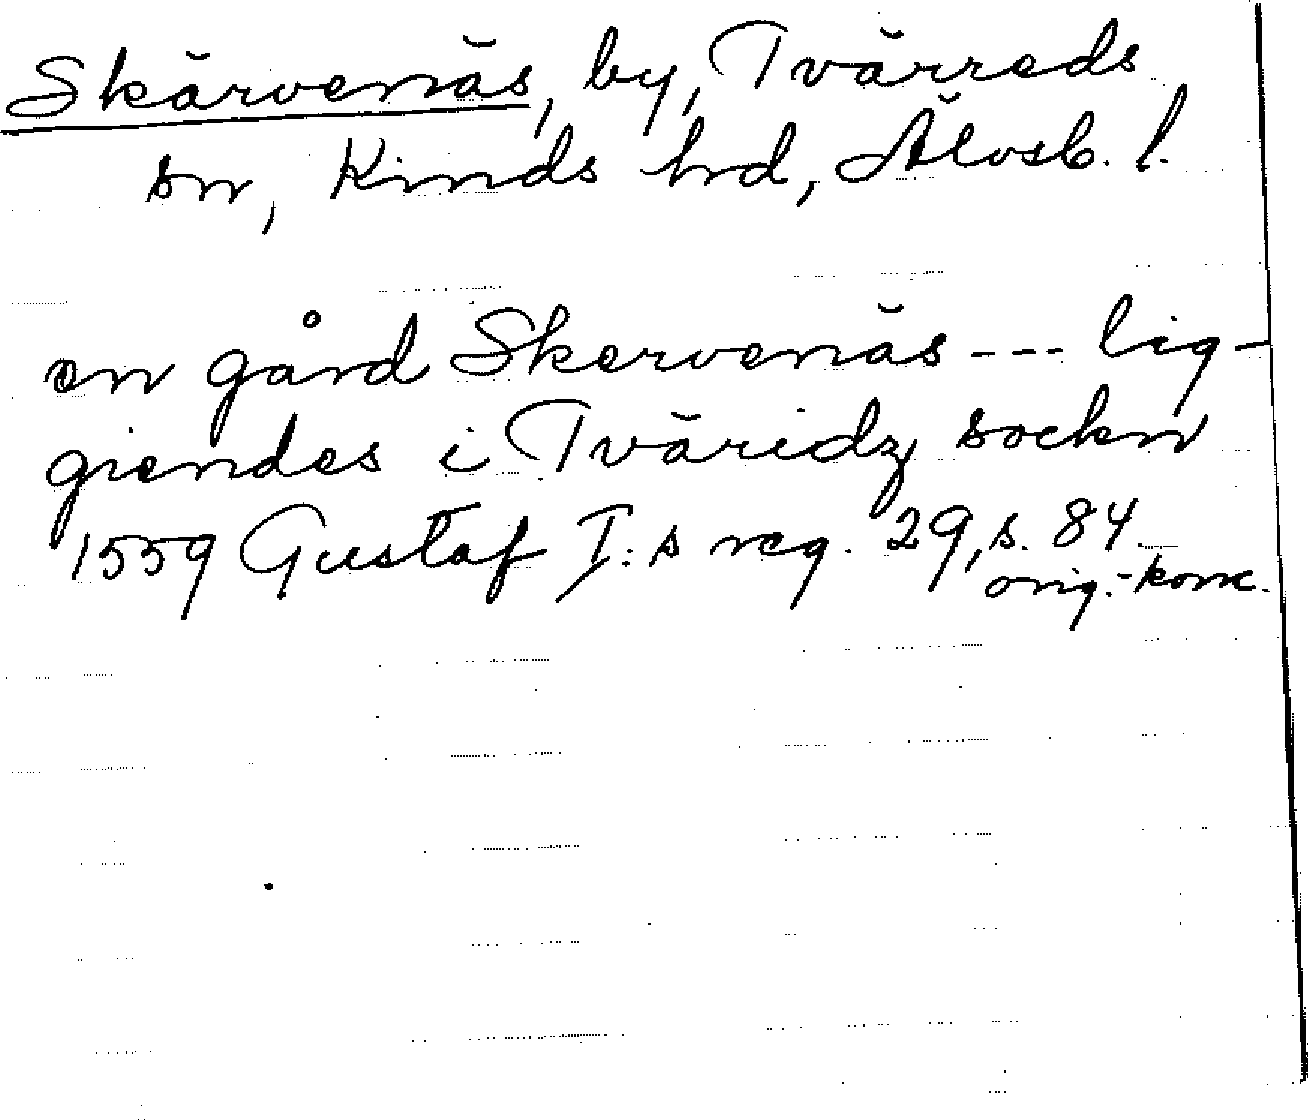 Skärvenäs, by, Tvärreds
sn, Kinds hrd, Älvsb. l.
en gård Skervenäs --- lig-
giendes i Tväridz sockn
1559 Gustaf I:s reg. 29, s. 84.
orig.-konc.